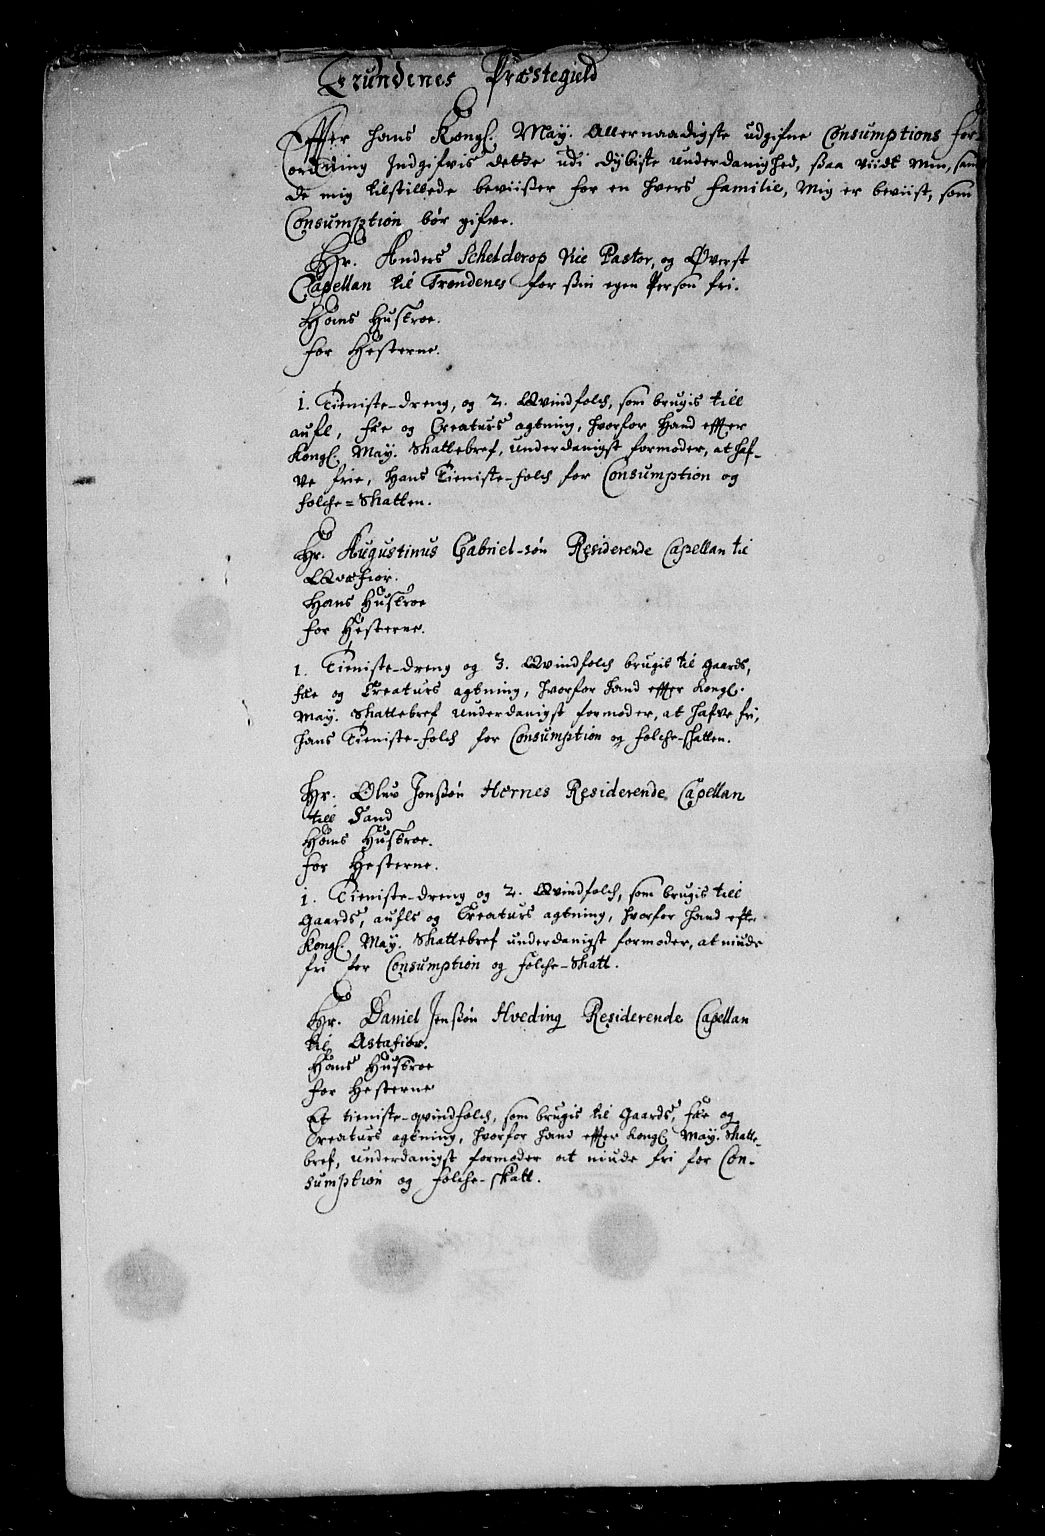 Trundenes Præstegield
Effter hans Kongl. May. Allernaadigste udgifne Consumptions for
ordning Indgifvis dette udi dybiste underdanighed, saa viidt min, sam
de mig tilstillede beviiser for en hvers familie, Mig er beviist, som
Consumption bør gifve.
Hr. Anders Schelderop Vice Pastor, og Øverst
Capellan til Trondenes for sin egen Person fri.
Hans Hustroe.
for Hesterne.
1. Tieniste-dreng, og 2. Qvindfolch, som brugis till
aufl, fæe og Creaturs agtning, hvorfor hand effter
Kongl. May. Skattebref, underdanigst formoder, at haf-
ve frie, hans Tieniste-folch for Consumption og
folche=Skatten.
Hr. Augustinus Gabriel-søn Residerende Capellan til
Qvæfior.
Hans Hustroe
for Hesterne.
1. Tieniste-dreng og 3. Qvindfolch brugis til gaards,
fæe og Creaturs agtning, hvorfor hand effter Kongl.
May. Skattebref underdanigst formoder, at hafve fri,
hans Tieniste-folch for Consumption og folche-skatten.
Hr. Oluv Jonssøn Hernes Residerende Capellan
till Sand
Hans Hustroe.
for Hesterne.
1. Tieniste-dreng og 2. Qvindfolch, som brugis till
gaards, aufls og Creaturs agtning, hvorfor hand efter
Kongl. May. Skattebref underdanigst formoder, at niude
fri for Consumption og folche-Skatt.
Hr. Daniel Jenssøn Hveding Residerende Capellan
til Astafior.
Hans Hustroe
for Hesterne
Et tieniste-qvindfolch, som brugis til gaards, fæe og
Creaturs agtning, hvorfor hand effter Kongl. May. Skatte-
bref, underdanigst formoder at niude fri for Con-
sumption og folche-skatt.